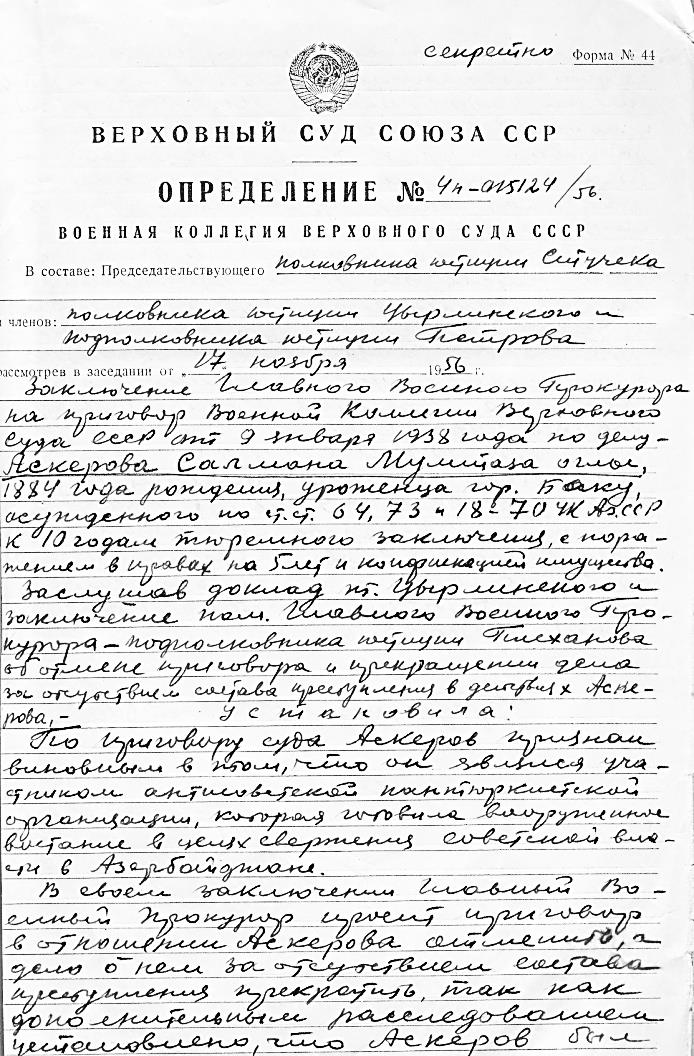 секретно Форма № 44
ВЕРХОВНЫЙ СУД СОЮЗА ССР
ОПРЕДЕЛЕНИЕ № 4н-015124/56.
ВОЕННАЯ КОЛЛЕГИЯ ВЕРХОВНОГО СУДА СССР
В составе: Председательствующего полковника юстиции Стучека
членов: полковника юстиции Цырлинского и
подполковника юстиции Петрова
рассмотрев в заседании от „17 ноября 1956 г.
Заключение Главного Военного Прокурора
на приговор Военной Коллегии Верховного
Суда СССР от 9 января 1938 года по делу-
Аскерова Салмана Мумтаза оглы,
1884 года рождения, уроженца гор. Баку,
осужденного по ст.ст. 64, 73 и 18-70 УК АзССР
к 10 годам тюремного заключения, с пора-
жением в правах на 5 лет и конфискацией имущества.
Заслушав доклад т. Цырлинского и
заключение пом. Главного Военного Про-
курора – подполковника юстиции Плеханова
об отмене приговора и прекращении дела
за отсутствием состава преступления в действиях Аске-
рова, – установила:
По приговору суда Аскеров признан
виновным в том, что он являлся уча-
стником антисоветской пантюркистской
организации, которая готовила вооруженное
востание в целях свержения советской вла-
сти в Азербайджане.
В своем заключении Главный Во-
енный Прокурор просит приговор
в отношении Аскерова отменить, а
дело о нем за отсутствием состава
преступления прекратить, так как
дополнительным расследованием
установлено, что Аскеров был